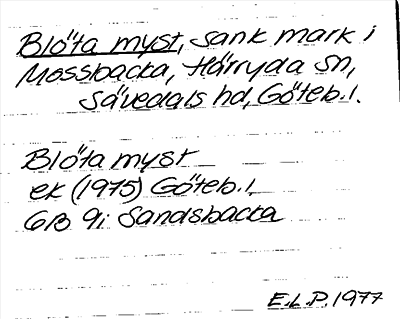 Blöta myst, sank mark i
Mossbacka, Härryda sn,
Sävedals hd, Göteb. l.
Blöta myst
ek (1975) Göteb. l,
6B 9i Sandsbacka
E.L.P. 1977